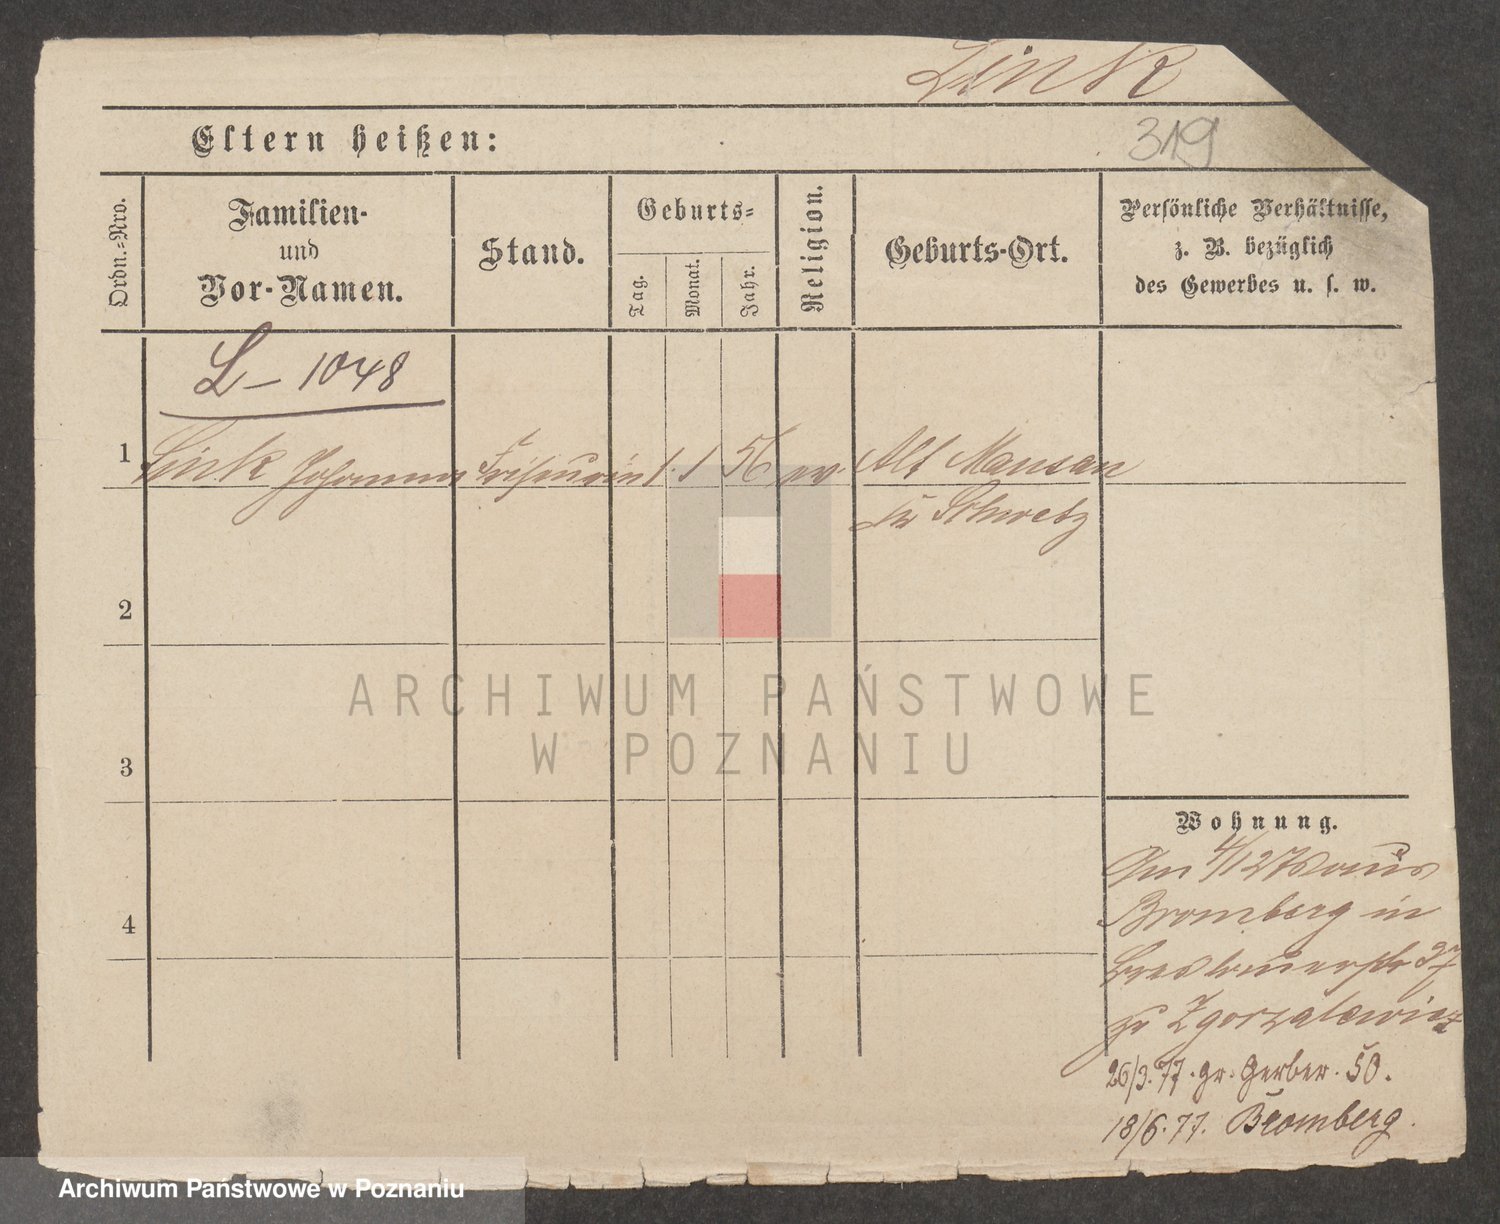 Link
319
Eltern heißen:
Ordn.-Nro.
Familien-
und
Vor-Namen.
Stand.
Geburts-
Tag.
Monat.
Jahr.
Religion.
Geburts-Ort.
Persönliche Verhältnisse,
z. B. bezüglich
des Gewerbes u. s. w.
L - 1048
1 Link Johanna Friseurin 1. 1 56 ev. Alt
Kr Schwetz
2
ARCHIWUM PAŃSTWOWE
W POZNANIU
3
Wohnung.
Am 4/12 aus
4
Bromberg in
37
zu Zgorzalewicz
26/3. 77. gr. Gerber. 50.
18/6. 77. Bromberg.
Archiwum Państwowe w Poznaniu